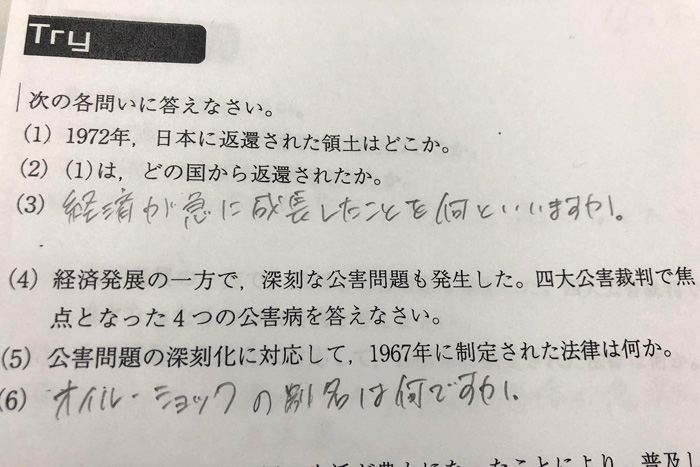 Try
次の各問いに答えなさい。
(1) 1972年，日本に返還された領土はどこか。
(2) (1)は，どの国から返還されたか。
(3) 経済が急に成長したことを何といいますか。
(4) 経済発展の一方で，深刻な公害問題も発生した。四大公害裁判で焦
点となった4つの公害病を答えなさい。
(5) 公害問題の深刻化に対応して，1967年に制定された法律は何か。
(6) オイル・ショックの別名は何ですか。
たことにより，普及し